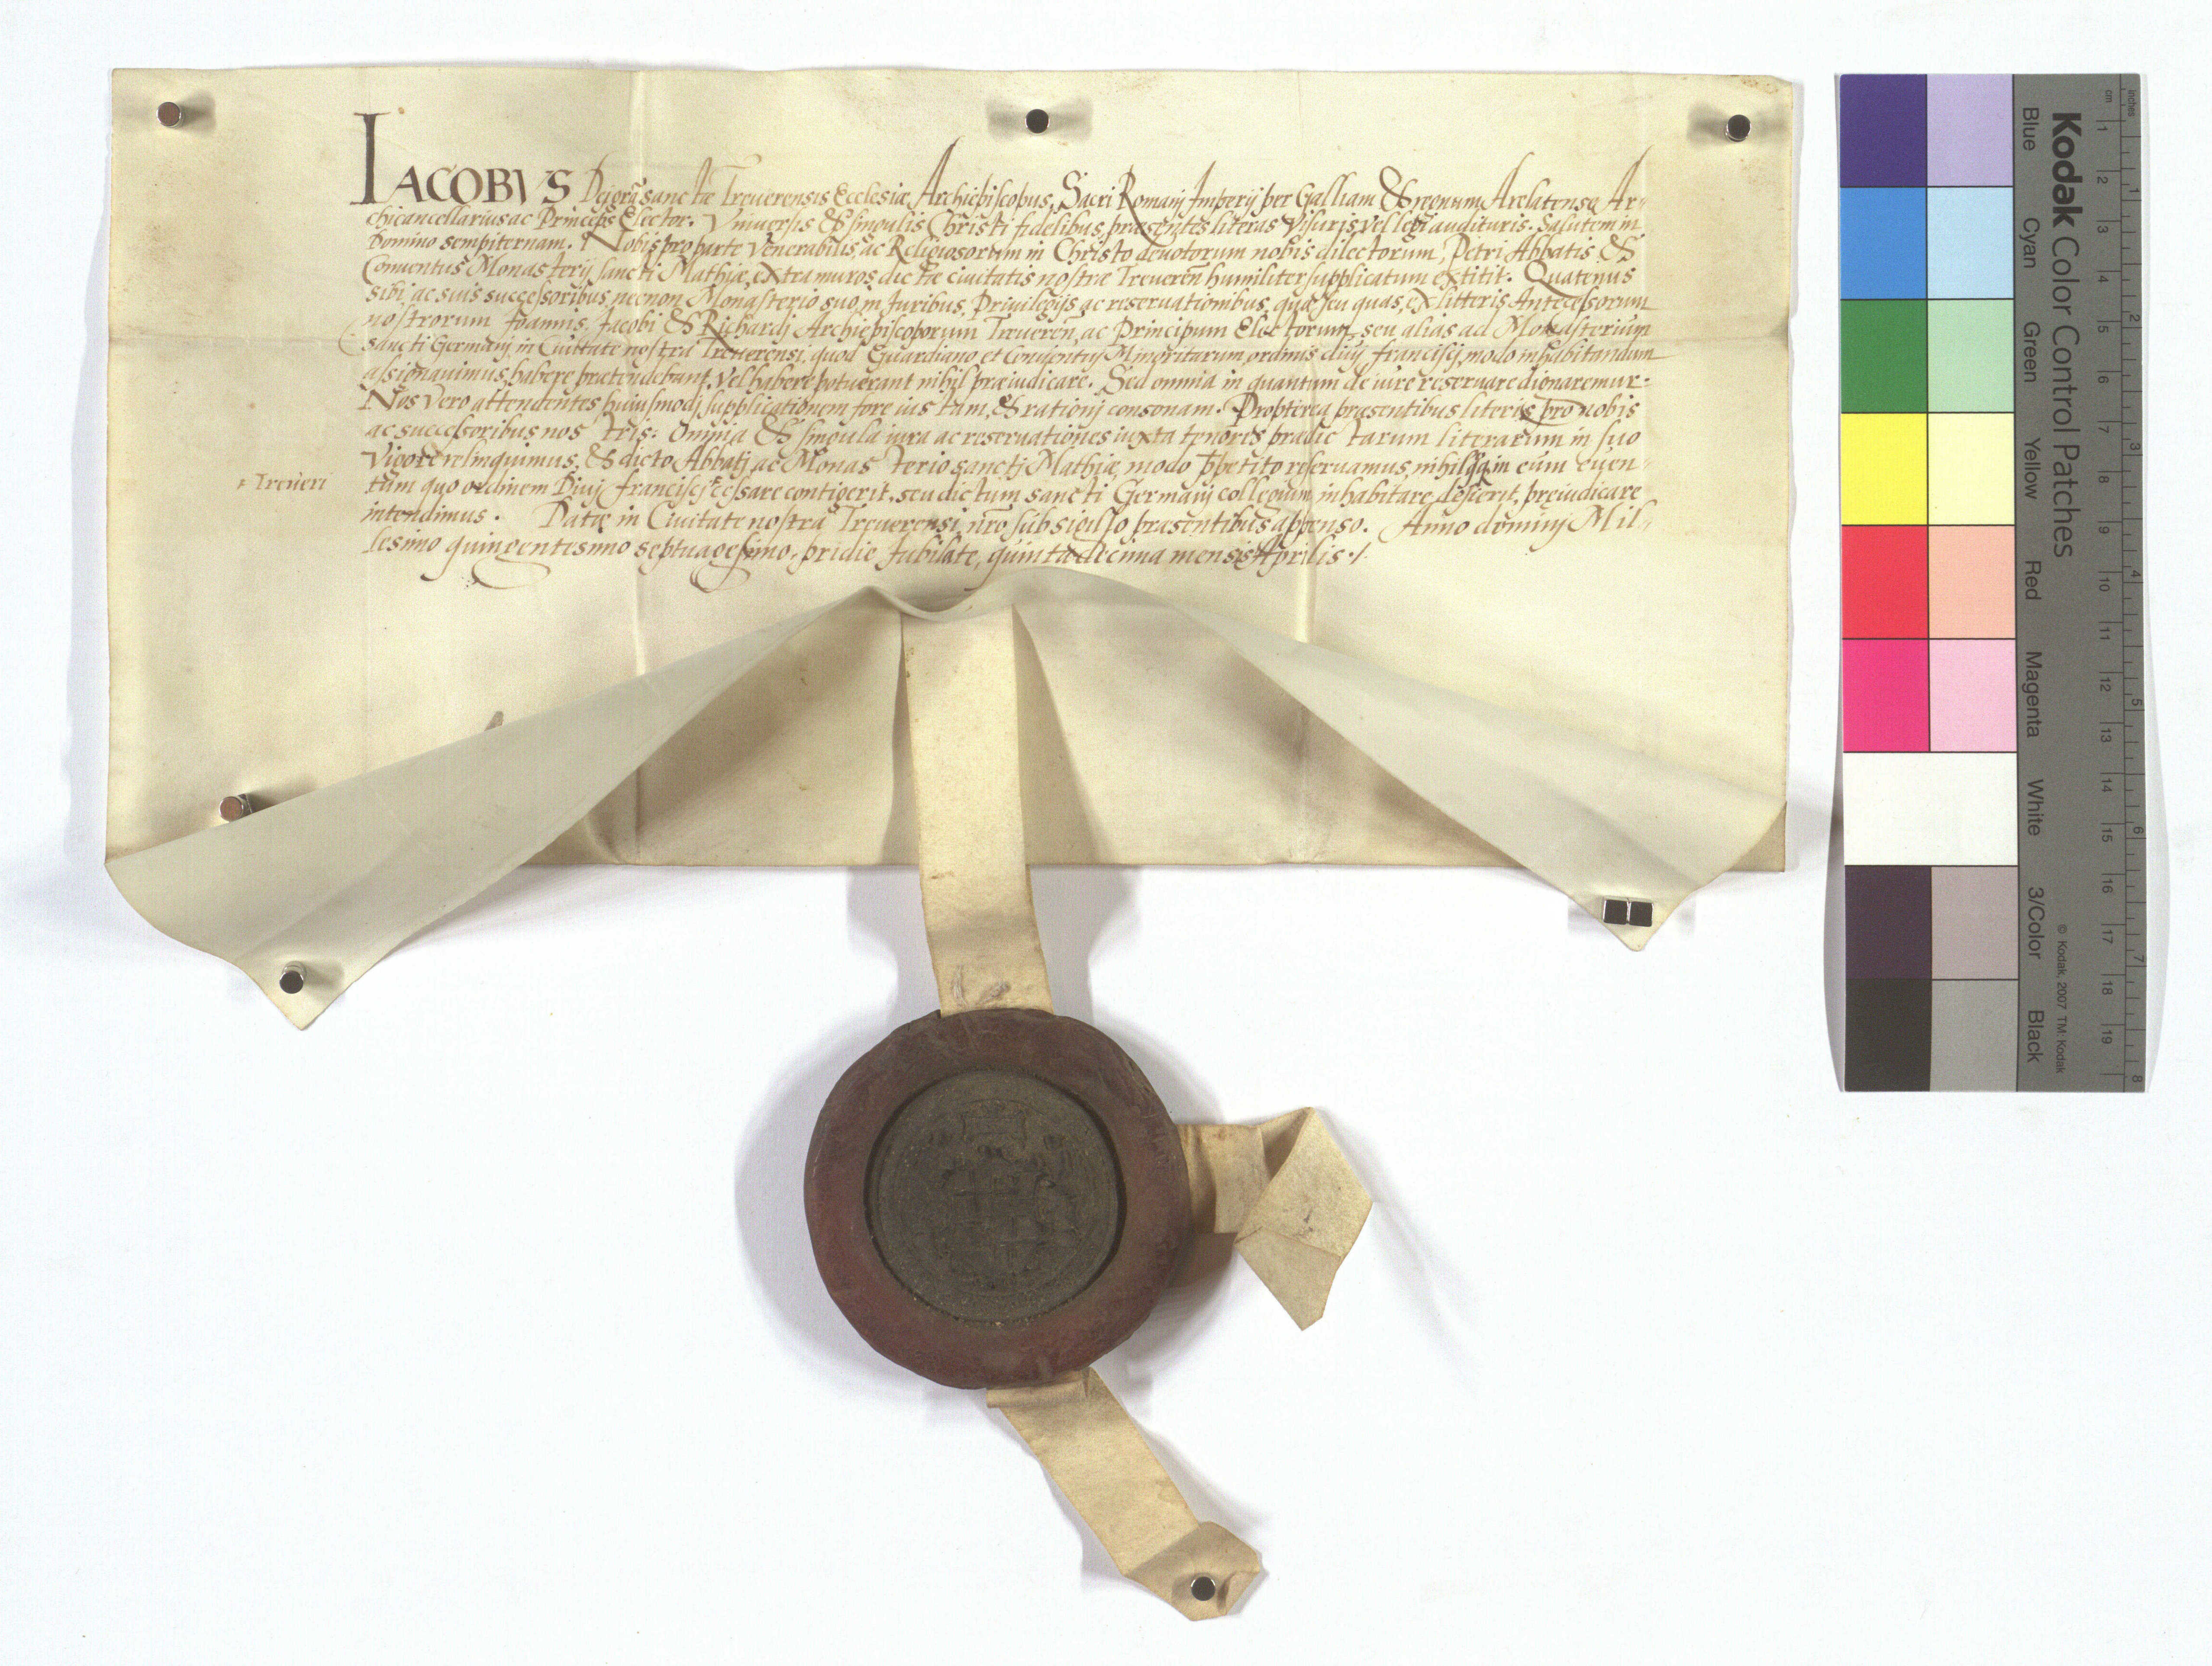 IACOBVS Dei gra sanctæ Treuerensis Ecclesiæ Archiepiscopus, Sacri Romanj Imperij per Galliam & regnum Arelatense Ar-
chicancellarius ac Princeps Elector. Vniuersis & singulis Christi fidelibus, præsentes literas visuris vel legi audituris. Salutem in
Domino sempiternam. Nobis pro parte Venerabilis, ac Religiosorum in Christo deuotorum nobis dilectorum, Petri Abbatis &
Conuentus Monasterij sancti Mathiæ, extra muros dictæ ciuitatis nostræ Treueren̄ humiliter supplicatum extitit. Quatenus
sibi, ac suis successoribus necnon Monasterio suo, in Juribus, Priuilegijs ac reseruationibus, quæ seu quas, ex litteris Antecessorum
nostrorum Joannis, Jacobi & Richardj Archiepiscoporum Treueren̄, ac Principum Electorum, seu alias ad Monasterium
sancti Germanj, in Ciuitate nostra Treuerensi, quod Guardiano et Conuentuj Minoritarum ordinis diuj franciscj, modo inhabitandum
assignauimus, habere prætendebant, vel habere potuerant nihil præiudicare. Sed omnia in quantum de iure reseruare dignaremur.
Nos vero attendentes huiusmodj supplicationem fore iustam, & rationj consonam. Propterea præsentibus literis pro nobis
ac successoribus nostris: Omnia & singula iura ac reseruationes iuxta tenores prædictarum literarum in suo
Vigore relinquimus, & dicto Abbatj, ac Monasterio sanctj Mathiæ, modo p̄petito reseruamus, nihilq̃ in eum euen-
Treueri
tum quo ordinem Diuj franciscj cessare contigerit, seu dictum sancti Germanj collegium inhabitare desierit, preiudicare
intendimus. Datæ in Ciuitate nostra Treuerensi, nr̄o sub sigillo præsentibus appenso. Anno dominj Mil-
lesimo quingentesimo septuagesimo, pridie Jubilate, quinta decima mensis Aprilis ./.
Kodak Color Control Patches
© Kodak, 2007 TM: Kodak
Blue Cyan Green Yellow Red Magenta White 3/Color Black
cm 1 2 3 4 5 6 7 8 9 10 11 12 13 14 15 16 17 18 19
inches 1 2 3 4 5 6 7 8